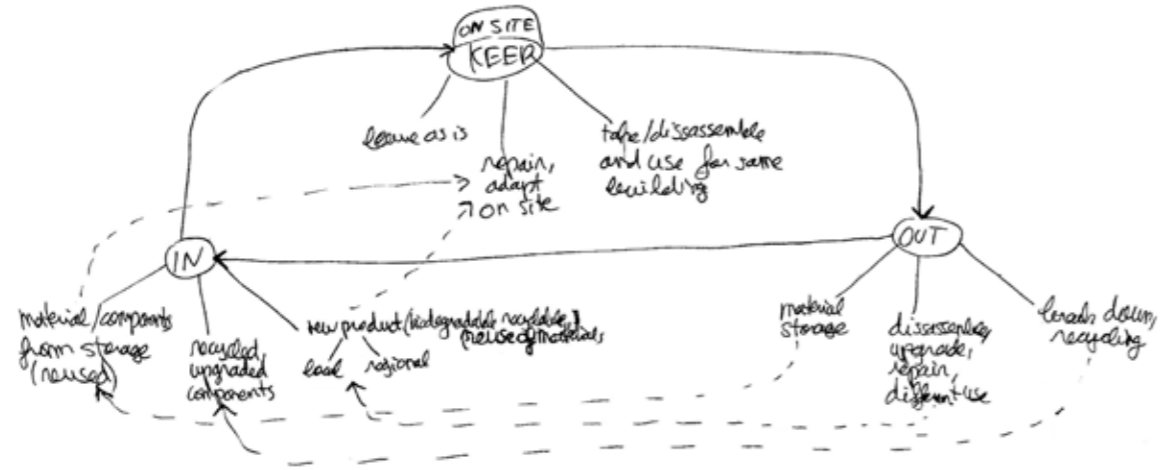 ON SITE
KEEP
leave as is
repair,
adapt
on site
take/dissassemble
and use for same
building
IN
OUT
material/components
from storage
(reused)
recycled,
upgraded
components
new product (biodegradable, recyclable,)
(reuse of materials
local
regional
material
storage
dissassemble,
upgrade,
repair,
different use
break down,
recycling